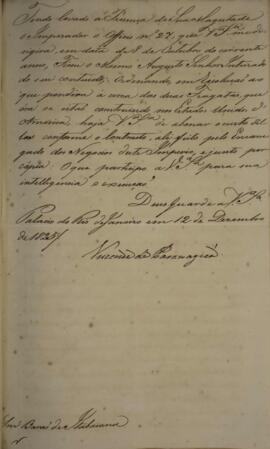 Tendo levado à Prezença de Sua Magestade
o Imperador o Officio Nº 27, que V. Sª me di-
rigira, em data de 8 de Outubro do corrente
anno, Ficou o Mesmo Augusto Senhor Inteirado
do seu contheudo, Ordenando em resolução ao
que pondera à cerca das duas Fragatas que
ora se estão construindo nos Estados Unidos d'
America, haja V. Sª de abonar o custo del-
las conforme o Contracto, ali feito pelo Encarre-
gado dos Negocios deste Imperio, e junto por
cópia. O que participo a V. Sª para sua
intelligencia e execução.
Deus Guarde a V. Sª
Palacio do Rio de Janeiro em 12 de Dezembro
de 1825
Visconde de Paranaguá
Snr Barão de Itabaiana